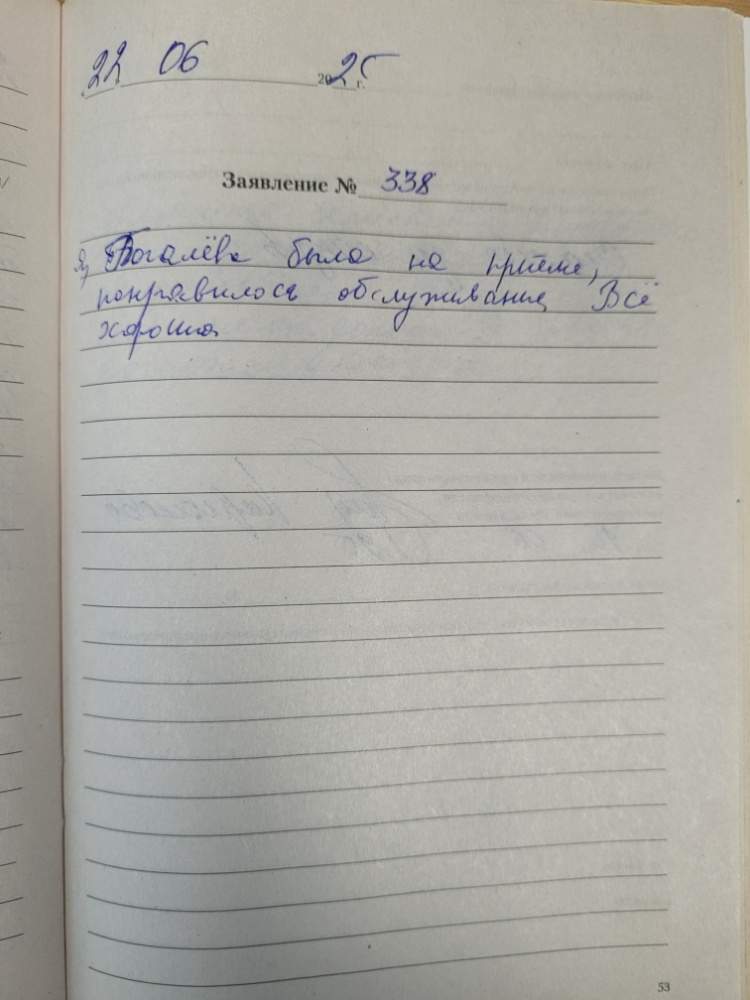 22 06 2025 г.
Заявление № 338
Я, Богалёва была на приёме,
понравилось обслуживание Всё
хорошо
53